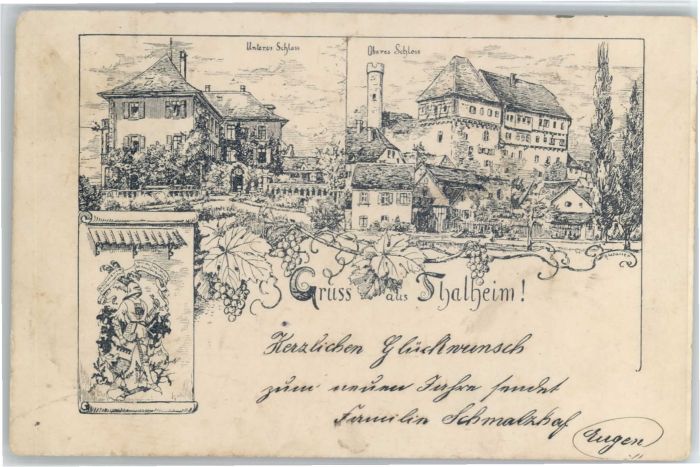 Unteres Schloss
Oberes Schloss
Gruss aus Thalheim!
Herzlichen Glückwunsch
zum neuen Jahre sendet
Familie Schmalzhaf
Eugen